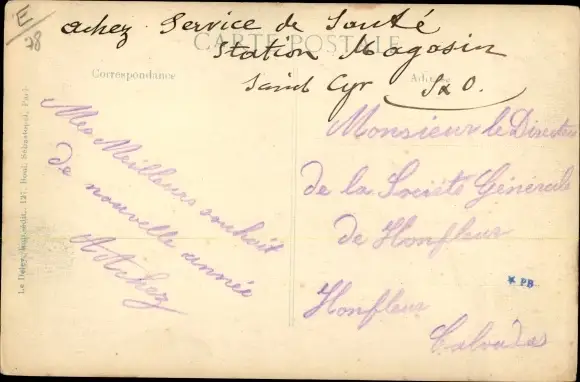 E
78
achez Service de Santé
CARTE POSTALE
Station Magasin
Saint Cyr S&O.
Correspondance
Mes Meilleurs souhait
de nouvelle année
A Achez
Monsieur le Directeur
de la Société Générale
de Honfleur
Honfleur
Calvados
* PB
Le Deley, 127, Boul. Sébastopol, Paris